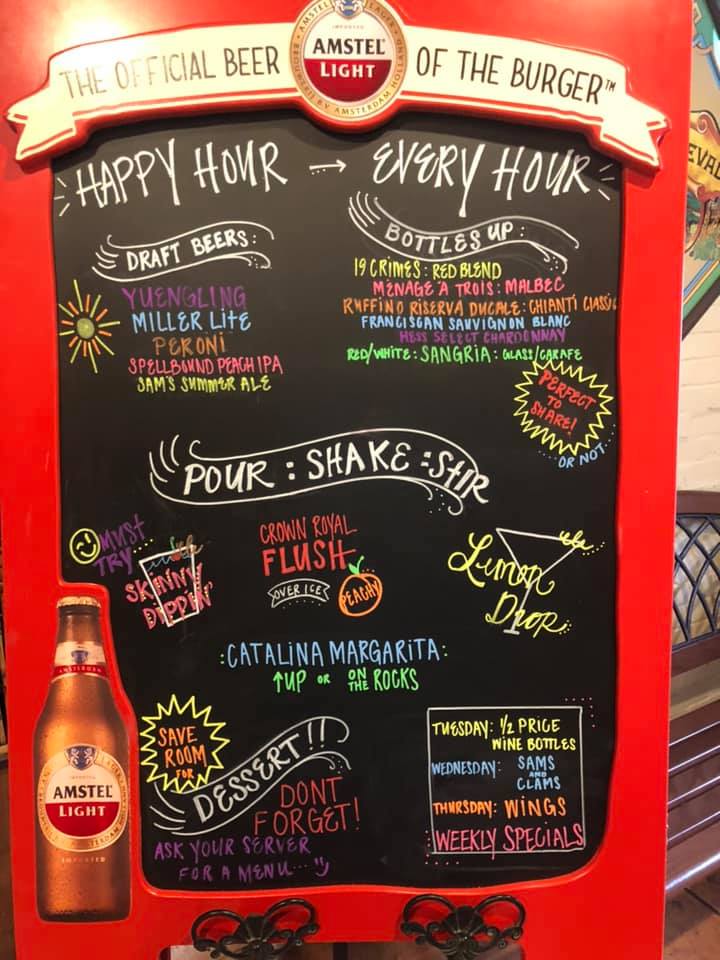 THE OFFICIAL BEER OF THE BURGER™
AMSTEL LAGER
IMPORTED
AMSTEL
LIGHT
BROUGHT BY AMSTERDAM HOLLAND
HAPPY HOUR → EVERY HOUR
DRAFT BEERS:
YUENGLING
MILLER LITE
PERONI
SPELLBOUND PEACH IPA
SAM'S SUMMER ALE
BOTTLES UP:
19 CRIMES: RED BLEND
MENAGE A TROIS: MALBEC
RUFFINO RISERVA DUCALE: CHIANTI CLASSIC
FRANCISCAN SAUVIGNON BLANC
HESS SELECT CHARDONNAY
RED/WHITE: SANGRIA: GLASS/CARAFE
PERFECT
TO
SHARE!
...OR NOT...
POUR : SHAKE : STIR
MUST
TRY
SKINNY
DIPPIN'
CROWN ROYAL
FLUSH
OVER ICE
PEACHY
Lemon
Drop
:CATALINA MARGARITA:
↑UP OR ON THE ROCKS
SAVE
ROOM
FOR
DESSERT!!
DONT
FORGET!
ASK YOUR SERVER
FOR A MENU...
TUESDAY: 1/2 PRICE
WINE BOTTLES
WEDNESDAY: SAMS
AND
CLAMS
THURSDAY: WINGS
WEEKLY SPECIALS
AMSTEL
LIGHT
IMPORTED
EVAL